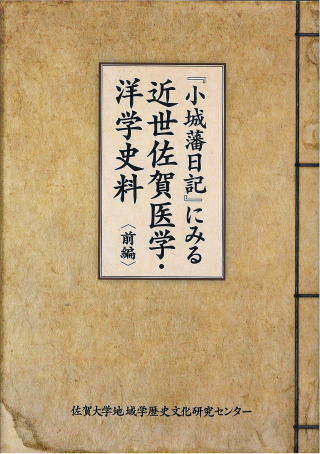 『小城藩日記』にみる
近世佐賀医学・
洋学史料
〈前編〉
佐賀大学地域学歴史文化研究センター